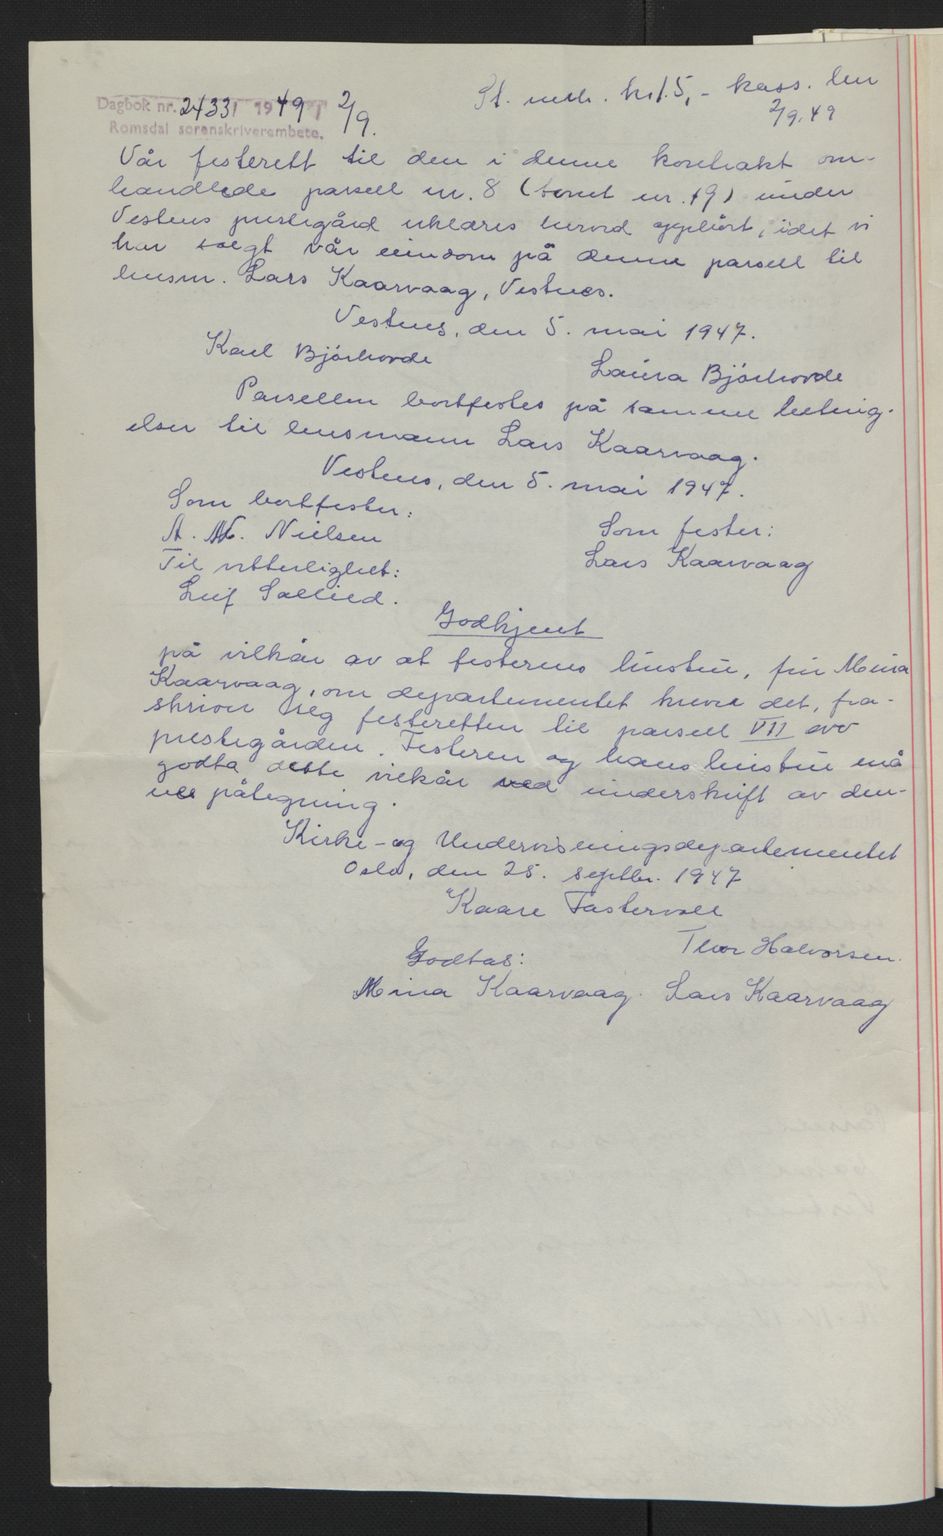 Dagbok nr. 2433 1949 2/9.
Romsdal sorenskriverembete.
St. merk. kr. 15,- kass. her
2/9.49
Vår festerett til den i denne kontrakt om-
handlede parsell nr. 8 (tomt nr. 19) under
Vestnes prestegård erklæres herved opphørt, idet vi
har solgt vår eiendom på denne parsell til
lensm. Lars Kaarvaag, Vestnes.
Vestnes, den 5. mai 1947.
Karl Bjørhovde
Laura Bjørhovde
Parsellen bortfestes på samme beting-
elser til lensmann Lars Kaarvaag.
Vestnes, den 5. mai 1947.
Som bortfester:
Som fester:
A. N. Nielsen
Lars Kaarvaag
Til vitterlighet:
Leif
Godkjent
på vilkår av at festerens hustru, fru Mina
Kaarvaag, om departementet krever det, fra-
skriver seg festeretten til parsell VII av
prestegården. Festeren og hans hustru må
godta dette vilkår ved underskrift av den-
ne påtegning.
Kirke- og Undervisningsdepartementet
Oslo, den 25. septbr. 1947
Kaare Fostervoll
Thor Halvorsen.
Godtas:
Mina Kaarvaag. Lars Kaarvaag